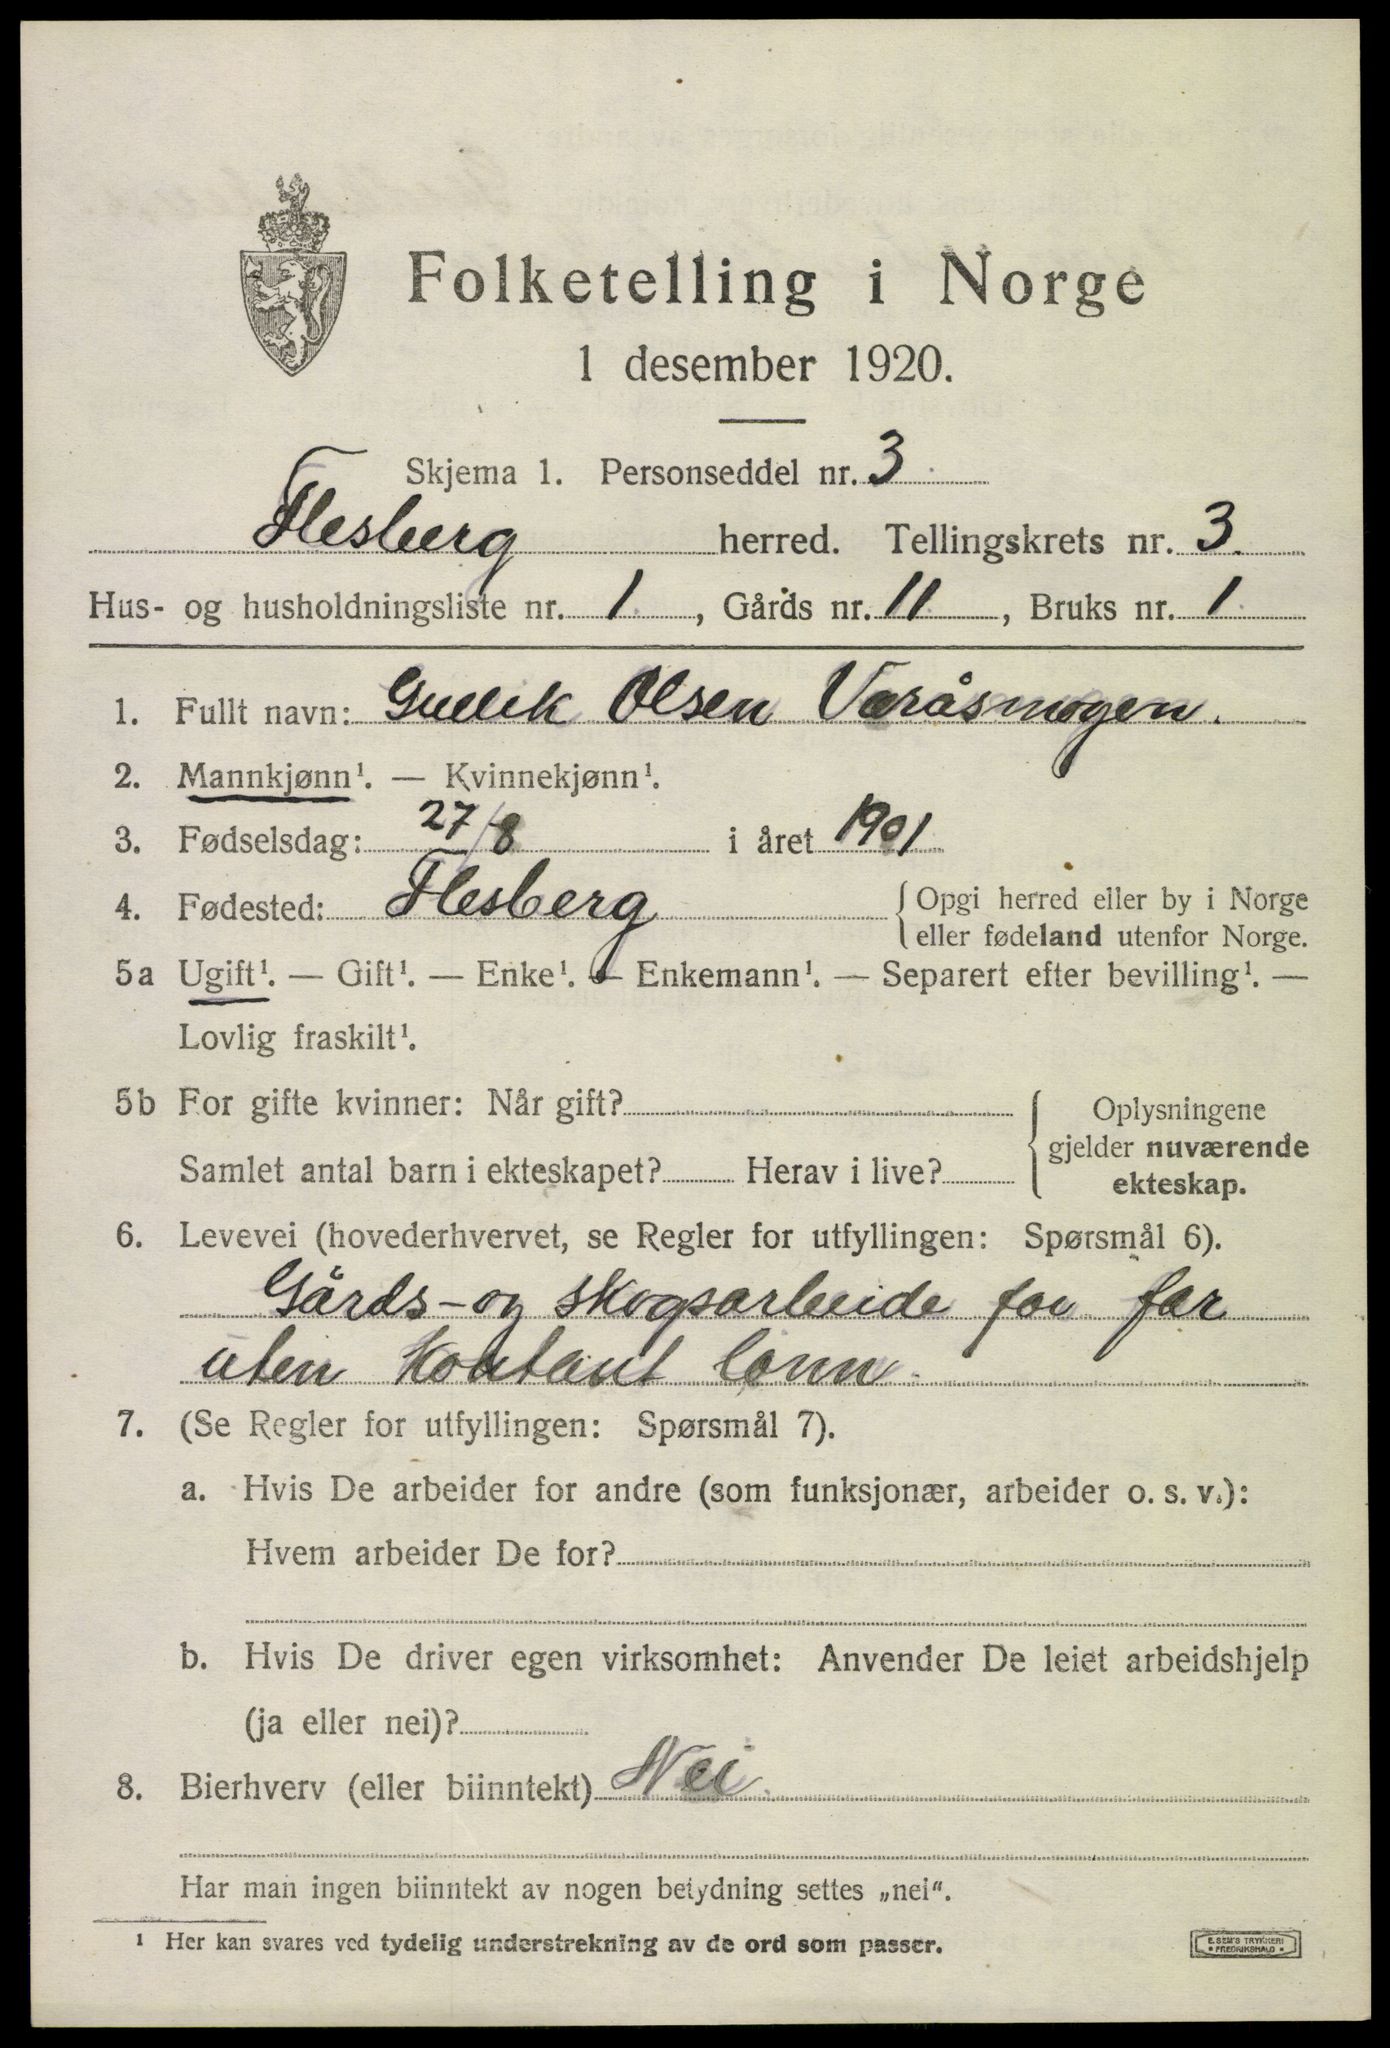 Folketelling i Norge
1 desember 1920.
Skjema 1. Personseddel nr. 3.
Flesberg herred. Tellingskrets nr. 3.
Hus- og husholdningsliste nr. 1, Gårds nr. 11, Bruks nr. 1.
1. Fullt navn: Gullik Olsen Væråsmogen.
2. Mannkjønn¹. — Kvinnekjønn¹.
3. Fødselsdag: 27/8 i året 1901
4. Fødested: Flesberg { Opgi herred eller by i Norge
eller fødeland utenfor Norge.
5a Ugift¹. — Gift¹. — Enke¹. — Enkemann¹. — Separert efter bevilling¹. —
Lovlig fraskilt¹.
5b For gifte kvinner: Når gift? { Oplysningene
gjelder nuværende
Samlet antal barn i ekteskapet? Herav i live? ekteskap.
6. Levevei (hovederhvervet, se Regler for utfyllingen: Spørsmål 6).
Gårds- og skogsarbeide for far
uten kontant lønn.
7. (Se Regler for utfyllingen: Spørsmål 7).
a. Hvis De arbeider for andre (som funksjonær, arbeider o. s. v.):
Hvem arbeider De for?
b. Hvis De driver egen virksomhet: Anvender De leiet arbeidshjelp
(ja eller nei)?
8. Bierhverv (eller biinntekt) Nei.
Har man ingen biinntekt av nogen betydning settes „nei“.
¹ Her kan svares ved tydelig understrekning av de ord som passer.
E. SEM'S TRYKKERI
• FREDRIKSHALD •